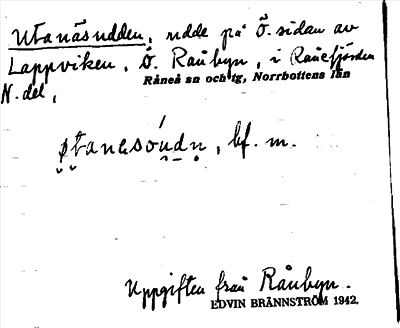 Utanäsudden, udde på Ö. sidan av
Lappviken, Ö. Råbyn, i Rånefjärden
Råneå sn och tg, Norrbottens län
N. del,
bf. m.
Uppgiften från Råbyn.
EDVIN BRÄNNSTRÖM 1942.